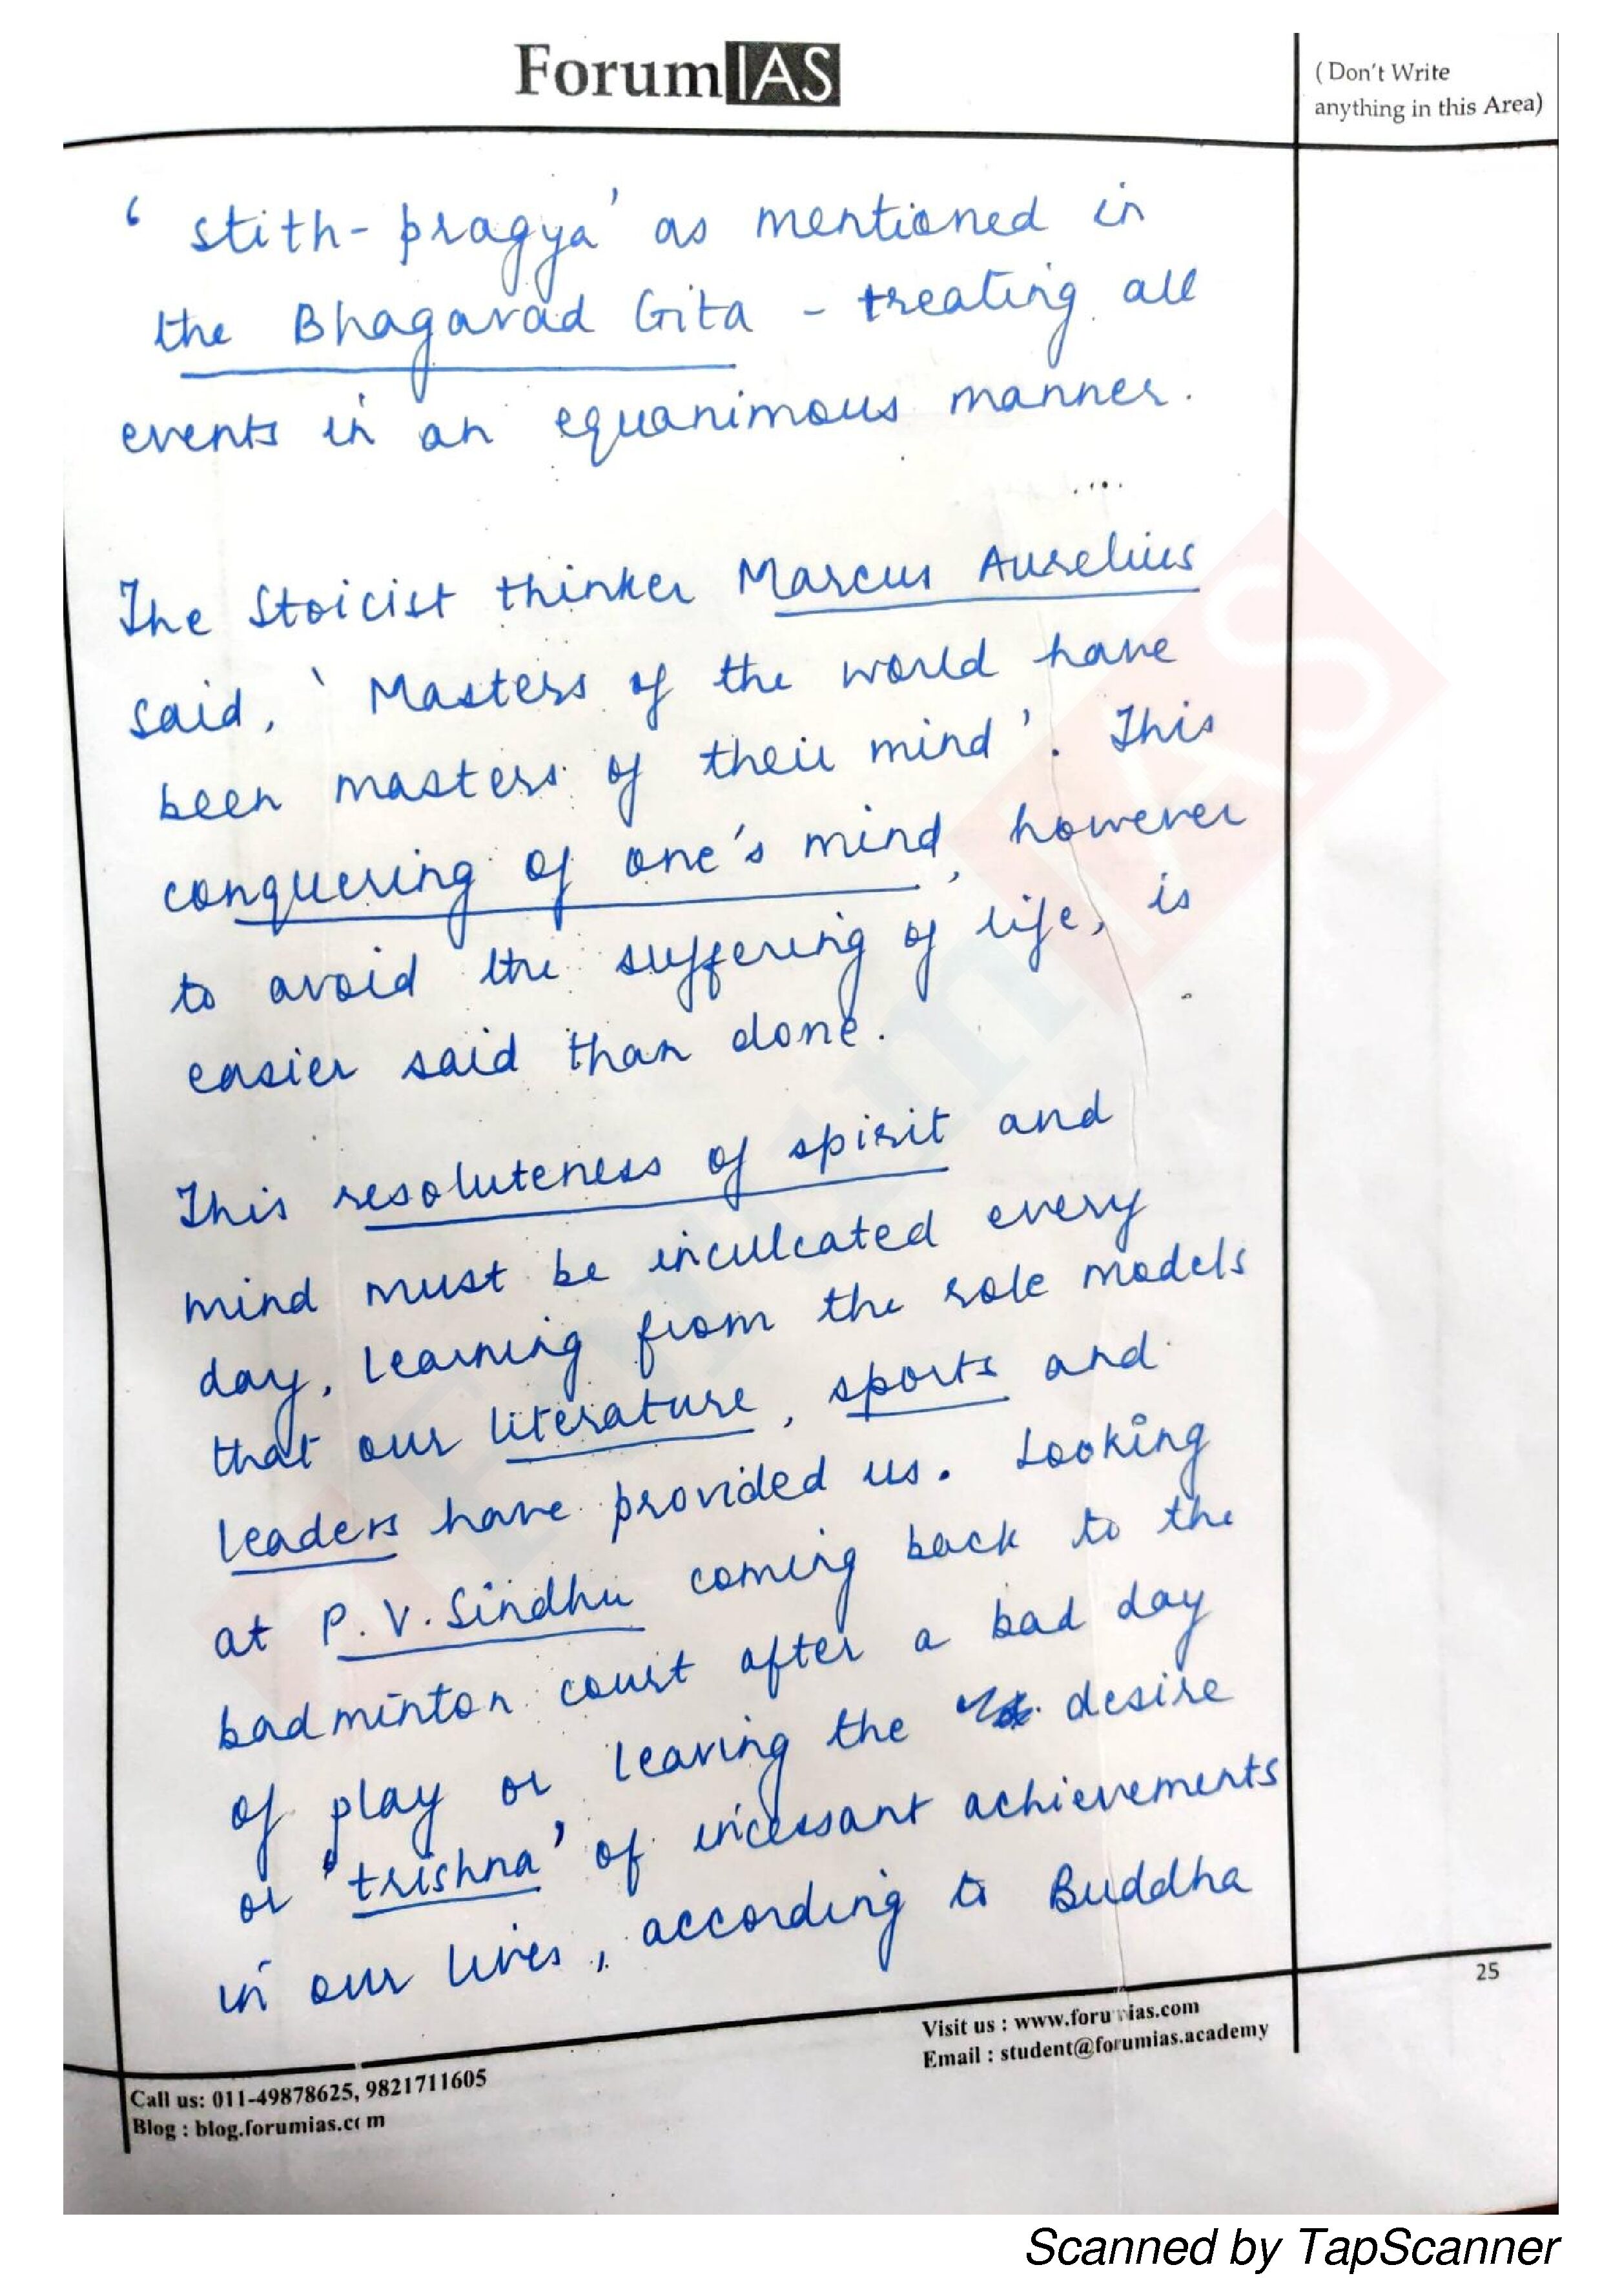 ForumIAS
( Don't Write
anything in this Area)
' stith-pragya' as mentioned in
the Bhagavad Gita - treating all
events in an equanimous manner.
The Stoicist thinker Marcus Aurelius
said, ' Masters of the world have
been masters of their mind'. This
conquering of one's mind, however
to avoid the suffering of life, is
easier said than done.
This resoluteness of spirit and
mind must be inculcated every
day, learning from the role models
that our literature, sports and
leaders have provided us. Looking
at P.V. Sindhu coming back to the
badminton court after a bad day
of play or leaving the desire
or 'trishna' of incessant achievements
in our lives, according to Buddha
25
Visit us : www.forumias.com
Email : student@forumias.academy
Call us: 011-49878625, 9821711605
Blog : blog.forumias.com
Scanned by TapScanner